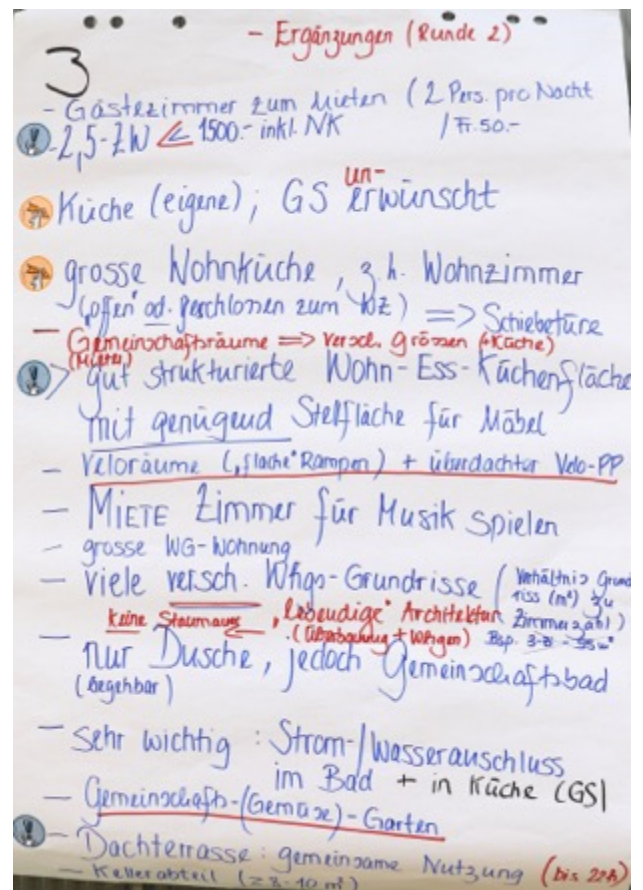 - Ergänzungen (Runde 2)
3
- Gästezimmer zum Mieten (2 Pers. pro Nacht
/ Fr. 50.-
- 2,5-ZW <= 1500.- inkl. NK
un-
Küche (eigene); GS erwünscht
grosse Wohnküche, z.h. Wohnzimmer
("offen" od. geschlossen zum WZ) => Schiebetüre
- Gemeinschaftsräume => versch. grössen (+Küche)
(Mieter)
gut strukturierte Wohn-Ess-Küchenfläche
mit genügend Stellfläche für Möbel
- Veloräume ("flache" Rampen) + überdachter Velo-PP
- MIETE Zimmer für Musik spielen
- grosse WG-Wohnung
- viele versch. Whgs-Grundrisse (Verhältnis Grund
riss (m²) zu
Zimmerzahl)
Keine "lebendige" Architektur
(Überbauung + Whgen) Bsp.
- nur Dusche, jedoch Gemeinschaftsbad
(begehbar)
- sehr wichtig: Strom-/Wasseranschluss
im Bad + in Küche (GS)
- Gemeinschafts-(Gemüse)-Garten
- Dachterrasse: gemeinsame Nutzung (bis 22h)
- Kellerabteil (z.B. 10 m²)